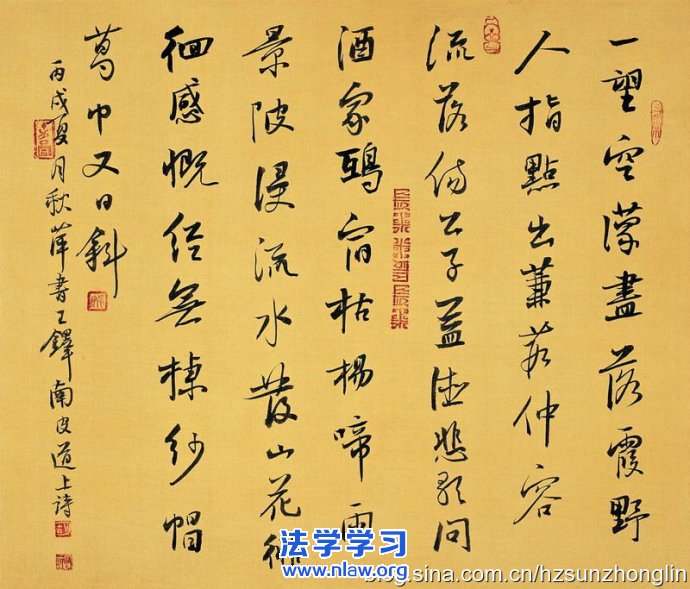 一望空濛盡落霞野
人指點出蒹葭仲容
流落傷公子益德悲歌問
酒家鵶宿枯楊啼雨
景陂浸流水發山花徘
徊感慨经無棟紗帽
葛巾又日斜
丙戌夏月秋萍書王鐸南皮道上詩
法学学习
www.nlaw.org
blog.sina.com.cn/hzsunzhonglin